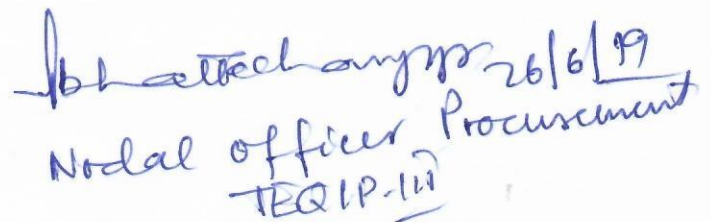 Bhattacharyya 26/6/19
Nodal Officer Procurement
TEQIP-III